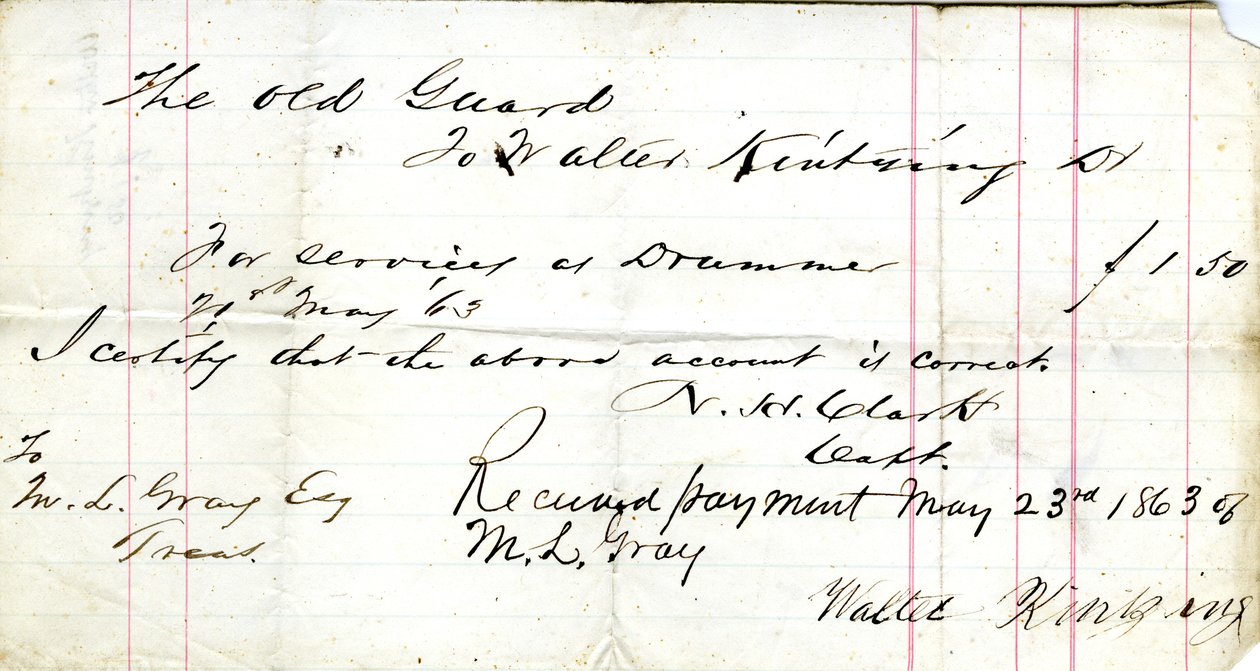 The Old Guard
To Walter Dr
For services as Drummer $1 50
21st May '63
I certify that the above account is correct.
N. H. Clark
Capt.
To
M. L. Gray Esq
Treas.
Received payment May 23rd 1863 of
M. L. Gray
Walter